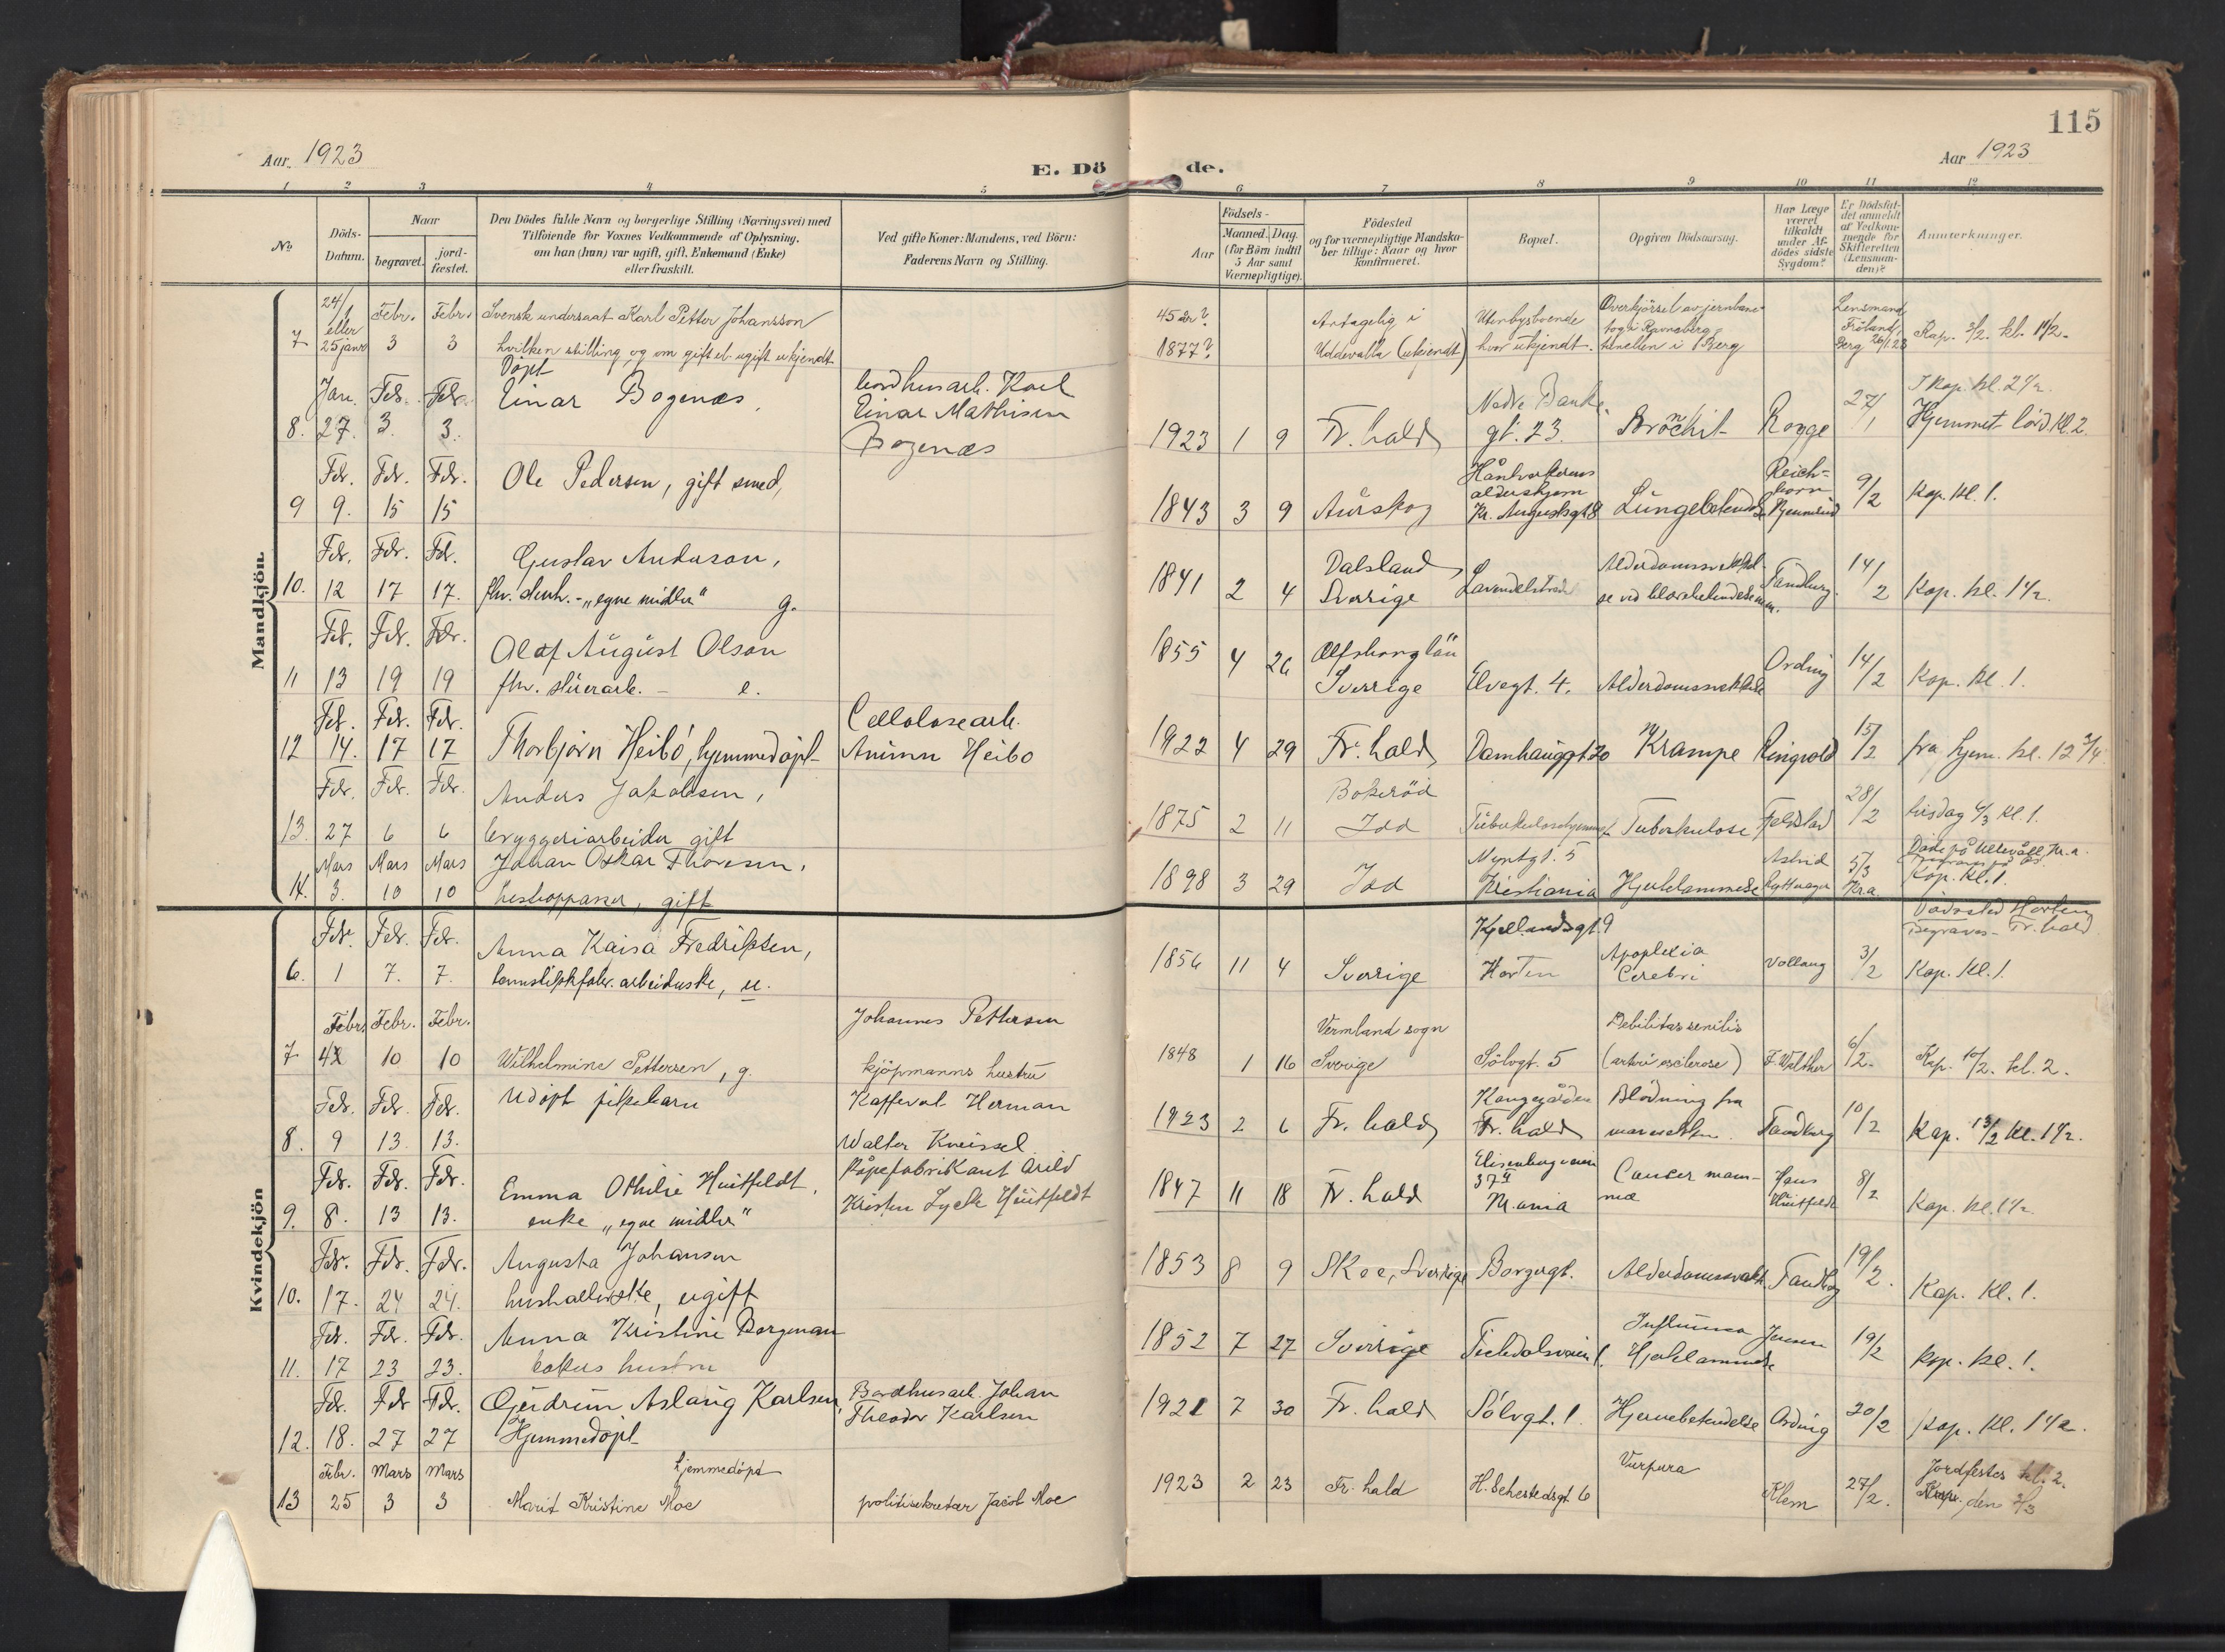 115
Aar. 1923
E. Dö
de.
Aar 1923
1 2 3 4 5 6 7 8 9 10 11 12
No
Döds-Datum.
Naar
begravet.
jord-fæstet.
Den Dödes fulde Navn og borgerlige Stilling (Næringsvei) med
Tilföiende for Voxnes Vedkommende af Oplysning,
om han (hun) var ugift, gift, Enkemand (Enke)
eller fraskilt.
Ved gifte Koner: Mandens, ved Börn:
Faderens Navn og Stilling.
Födsels-
Aar
Maaned. Dag.
(for Börn indtil
5 Aar samt
Værnepligtige).
Födested
og for værnepligtige Mandska-
ber tillige: Naar og hvor
konfirmeret.
Bopæl.
Opgiven Dödsaarsag.
Har Læge
været
tilkaldt
under Af-
dödes sidste
Sygdom?
Er Dödsfal-
det anmeldt
af Vedkom-
mende for
Skifteretten
(Lensman-
den)?
Anmærkninger.
Mandkjön.
24/1 eller 25 janr Febr. Febr. Svensk undersaat Karl Petter Johansson
7 3 3 hvilken stilling og om gift el. ugift ukjendt
45 år? 1877? Antagelig i Uddevalla (ukjendt) Utenbysboende hvor ukjendt. Overkjörsel av jernbane- tog i i Berg Lensmand Fröland Berg 26/1.23 Kap. 3/2. kl. 1 1/2.
Döpt
Jan. Feb. Feb. Einar Bogenæs,
8. 27. 3. 3. Karl
Einar Mathisen
Bogenæs
1923 1 9 Fr.hald Nedre Banke gt. 23. Bronchit Rogge 27/1 I Kap. kl. 2 1/2. Hjemmet lörd. kl. 2
Feb. Feb. Feb. Ole Pedersen, gift smed,
9 9. 15 15
1843 3 9 Aurskog Håndverkernes aldershjem Kr. Augustsgt 8 Lungebetendelse Reich-horn 9/2 Kap. kl. 1.
Feb. Feb. Feb. Gustav Anderson,
10. 12 17 17. fhv. - "egne midler" g.
1841 2 4 Dalsland Sverige Alderdomssvækkel- se ved Tandberg. 14/2 Kap. kl. 1 1/2.
Feb. Feb. Feb. Olaf August Olson
11 13 19 19 fhv. - e.
1855 4 26 Elfsborg län Sverige Elvegt. 4. Alderdomssvækkelse Ording 14/2 Kap. kl. 1.
Feb. Feb. Feb. Cellulosearb.
12 14. 17 17 Thorbjörn Heibö, hjemmedöpt Heibo
1922 4 29 Fr.hald Damhauggt 20 Krampe Ringvold 15/2 fra hjem. kl. 12 3/4
Feb. Feb. Feb. Anders Jakobsen,
13. 27 6 6 bryggeriarbeider gift
1875 2 11 Bokeröd Idd Tuberkulosehjemmet Tuberkulose Fjeldstad 28/2 tirsdag 6/3 kl. 1.
Mars Mars Mars Johan Oskar Thoresen,
14. 3. 10 10 gift
1898 3 29 Idd Myntgt. 5 Kristiania Hjertelammelse Astrid 5/3 Kr.a Döde på Ullevål, Kr.a. Kap. kl. 1.
Kvindekjön
Feb. Feb. Feb. Anna Kaisa Fredriksen,
6. 1 7. 7. arbeiderske, u.
1856 11 4 Sverige Kjellandsgt. 9 Horten Apoplexia Cerebri Vollaug 3/2 Dödssted Horten Begraves - Fr.hald Kap. kl. 1.
Febr. Febr. Febr. Johannes Pettersen
7 4 10 10 Wilhelmine Pettersen, g. kjöpmanns hustru
1848 1 16 Vermland sogn Sverige Sölvgt. 5 Debilitas senilis (arteriosclerose) F. Walther 6/2. Kap. 10/2. kl. 2.
Feb. Feb. Feb. Udöpt pikebarn Herman
8. 9 13. 13. Walter Kneissel
1923 2 6 Fr.hald Kongegården Fr.hald Blödning fra Tandberg 10/2 Kap. 13/2 kl. 1 1/2.
Feb. Feb. Feb. Emma Othilie Huitfeldt, Såpefabrikant Arild
9. 8. 13 13. enke "egne midler" Kristen Lycke Huitfeldt
1847 11 18 Fr.hald Elisenbergveien 37 II Kr.ania Cancer mam- mæ Hans Huitfeldt 8/2 Kap. kl. 1 1/2.
Feb. Feb. Feb. Augusta Johansen
10. 17. 24 24. husholderske, ugift
1853 8 9 Skee, Sverige Borgergt. Alderdomssvækk. Tandberg 19/2. Kap. kl. 1.
Feb. Feb. Feb. Anna Kristine Borgman
11. 17 23 23. bakers hustru
1852 7 27 Sverige Tistedalsveien 1. Influensa Hjertelammelse Jensen 19/2 Kap. kl. 1.
Feb. Feb. Feb. Gudrun Aslaug Karlsen, Bordhusarb. Johan
12. 18. 27 27 Hjemmedöpt Theodor Karlsen
1921 7 30 Fr.hald Sölvgt. 1. Hjernebetendelse Ording 20/2 Kap. kl. 1 1/2.
Febr. Mars Mars hjemmedöpt
13 25 3 3 Marit Kristine Moe politisekretær Jacob Moe
1923 2 23 Fr.hald H. Sehestedsgt 6 Purpura Klem 27/2. Jordfestes kl. 2. den 3/3